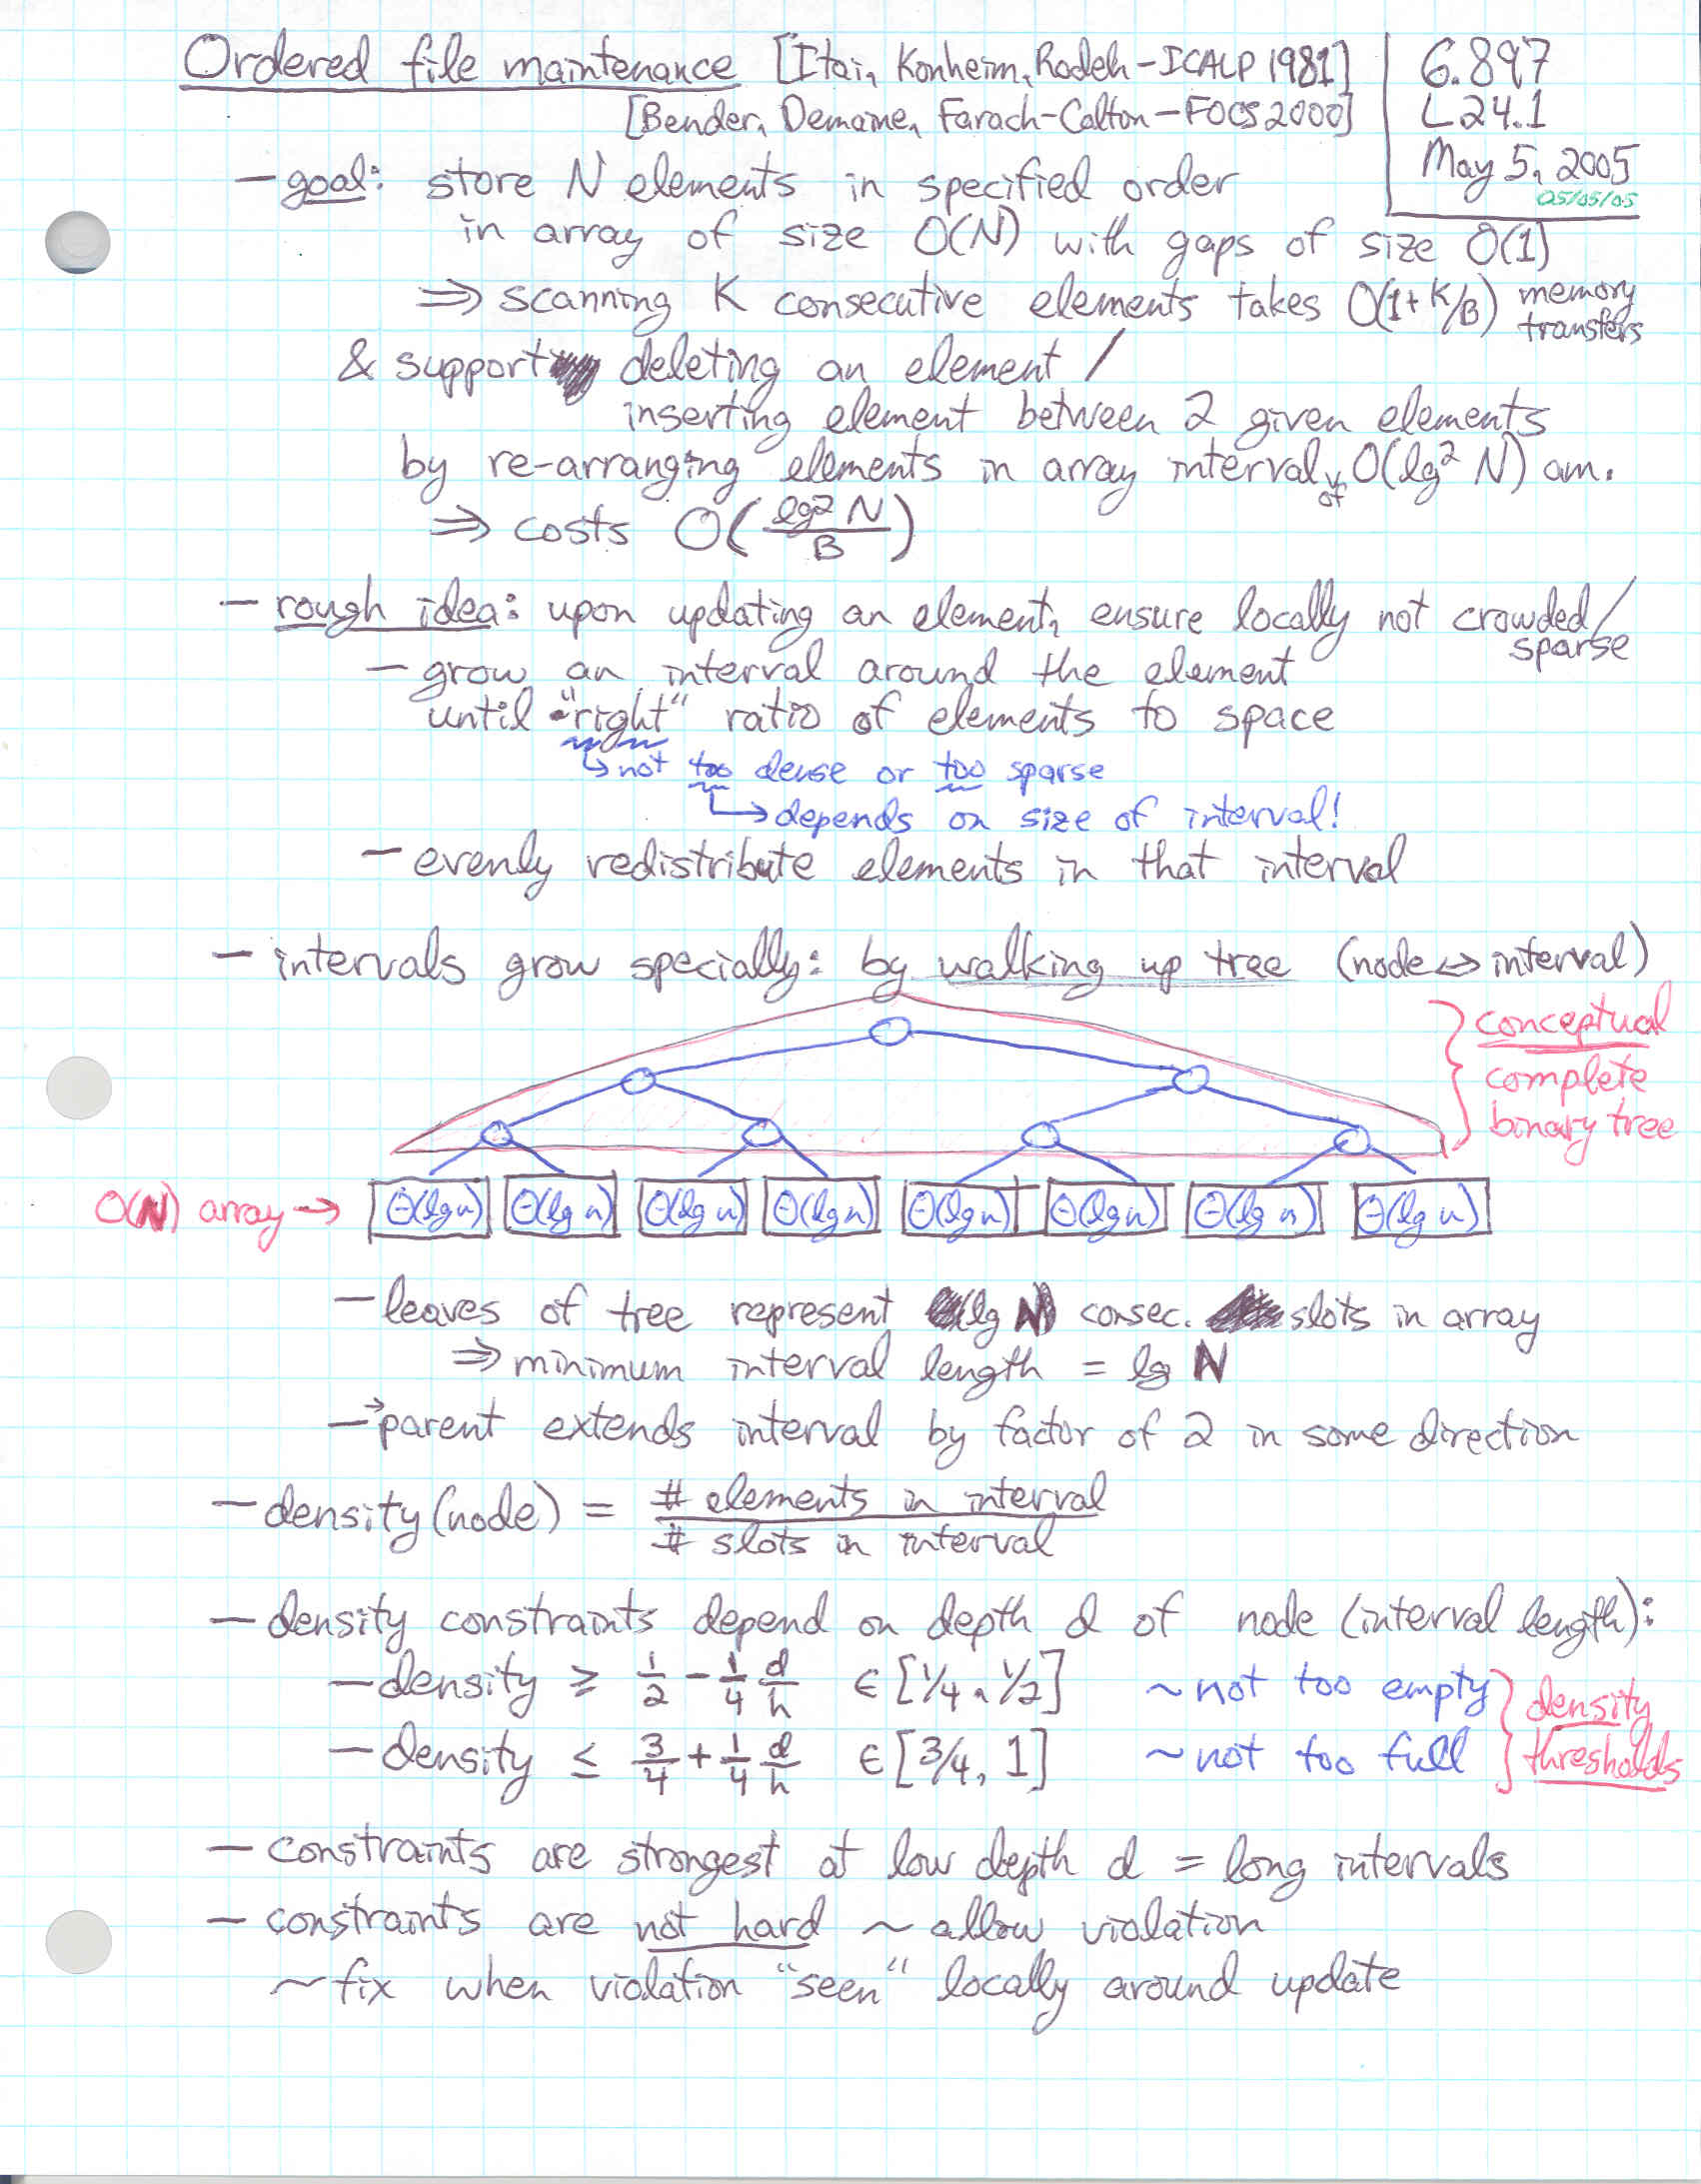 Ordered file maintenance [Itai, Konheim, Rodeh – ICALP 1981]
[Bender, Demaine, Farach-Colton – FOCS 2000]
6.897
L24.1
May 5, 2005
05/05/05
– goal: store N elements in specified order
in array of size O(N) with gaps of size O(1)
⇒ scanning K consecutive elements takes O(1+K/B) memory transfers
& support deleting an element /
inserting element between 2 given elements
by re-arranging elements in array interval of O(lg² N) am.
⇒ costs O(lg² N / B)
– rough idea: upon updating an element, ensure locally not crowded/
sparse
– grow an interval around the element
until "right" ratio of elements to space
↳ not too dense or too sparse
↳ depends on size of interval!
– evenly redistribute elements in that interval
– intervals grow specially: by walking up tree (node ↔ interval)
conceptual
complete
binary tree
O(N) array → Θ(lg n) Θ(lg n) Θ(lg n) Θ(lg n) Θ(lg n) Θ(lg n) Θ(lg n) Θ(lg n)
– leaves of tree represent lg N consec. slots in array
⇒ minimum interval length = lg N
– → parent extends interval by factor of 2 in some direction
– density(node) = # elements in interval / # slots in interval
– density constraints depend on depth d of node (interval length):
– density ≥ 1/2 – 1/4 d/h ∈ [1/4, 1/2] ~ not too empty
– density ≤ 3/4 + 1/4 d/h ∈ [3/4, 1] ~ not too full
density
thresholds
– constraints are strongest at low depth d = long intervals
– constraints are not hard ~ allow violation
~ fix when violation "seen" locally around update